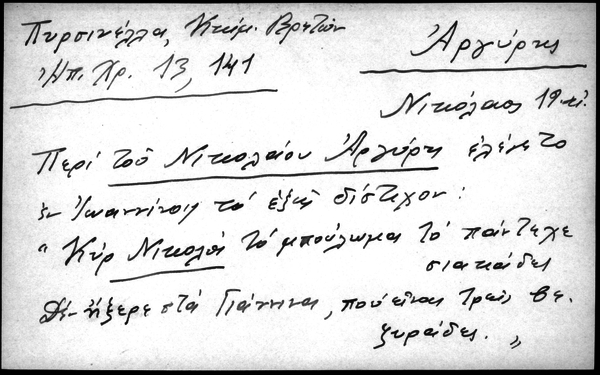 Πυρσινέλλα, Κτημ. Βρετῶν
Ἠπ. Χρ. 13, 141
Ἀργύρης
Νικόλαος 19 αἰ.
Περί τοῦ Νικολαίου Ἀργύρη ἐλέγετο
ἐν Ἰωαννίνοις τό ἑξῆς δίστιχον:
" Κύρ Νικολός τό μπούλωμα τό πάντεχε
σιακάδες
Δέν ἤξερε στά Γιάννινα, πού εἶναι τρεῖς βε-
ζυράδες. "